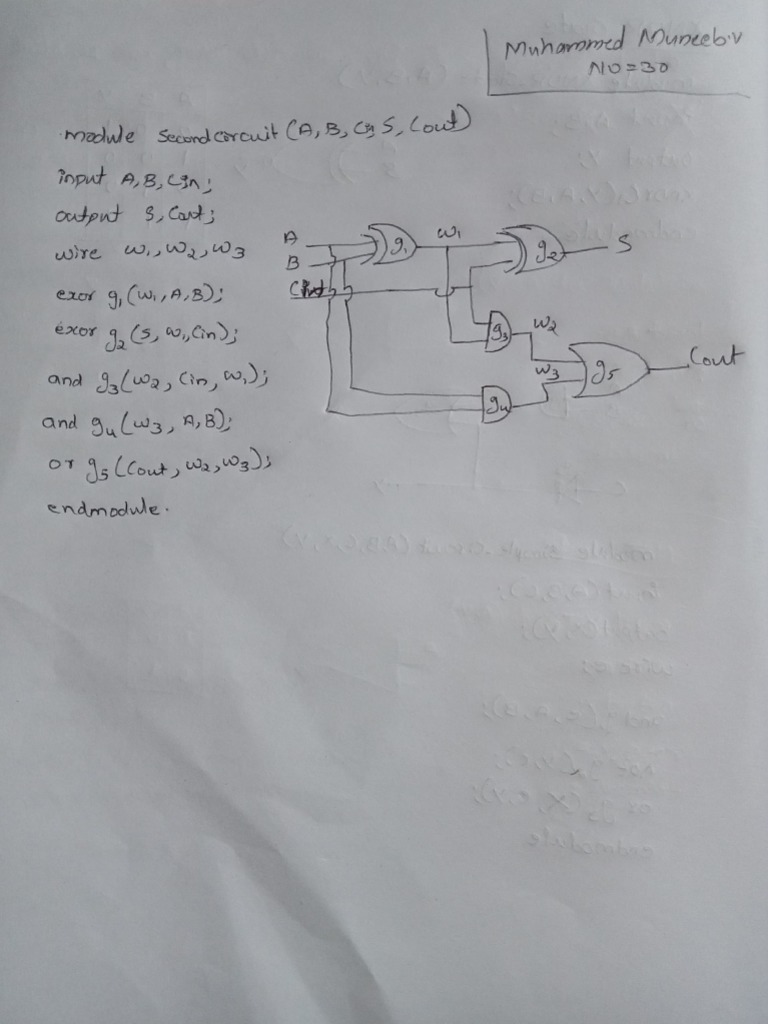 Muhammed Muneeb.v
NO=30
module Secondcorcuit (A, B, Cin S, Cout)
input A, B, Cin;
output S, Cout;
wire w1, w2, w3
exor g1 (w1, A, B);
exor g2 (S, w1, Cin);
and g3 (w2, Cin, w1);
and g4 (w3, A, B);
or g5 (Cout, w2, w3);
endmodule.
A
B
g1
w1
g2
S
g3
w2
w3
g4
g5
Cout